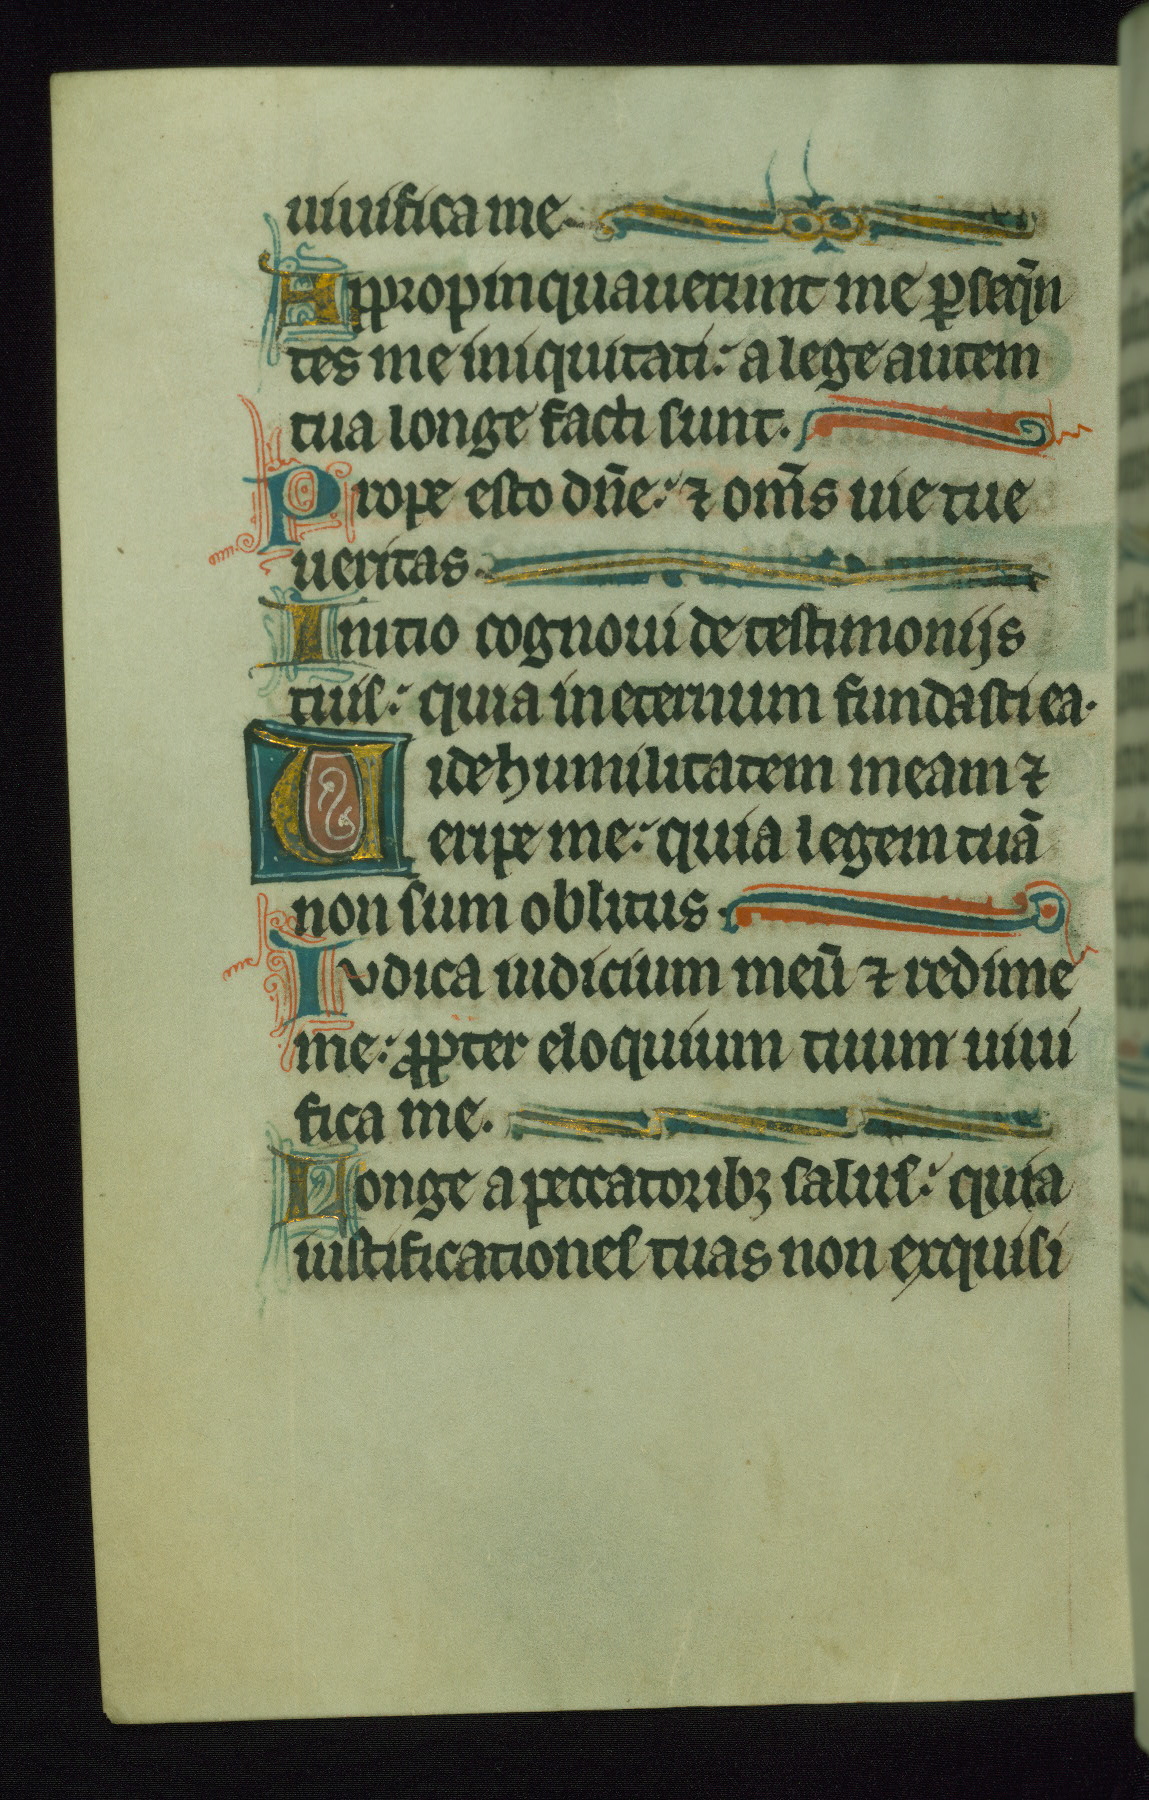 uiuifica me.
Appropinquauerunt me ꝑseqn̄
tes me iniquitati: a lege autem
tua longe facti sunt.
Prope esto dn̄e: ⁊ om̄s uie tue
ueritas.
Initio cognoui de testimonijs
tuis: quia in eternum fundasti ea.
Uide humilitatem meam ⁊
eripe me: quia legem tuā
non sum oblitus.
Iudica iudicium meū ⁊ redime
me: ꝓpter eloquium tuum uiui
fica me.
Longe a peccatoribꝫ salus: quia
iustificationes tuas non exquisi